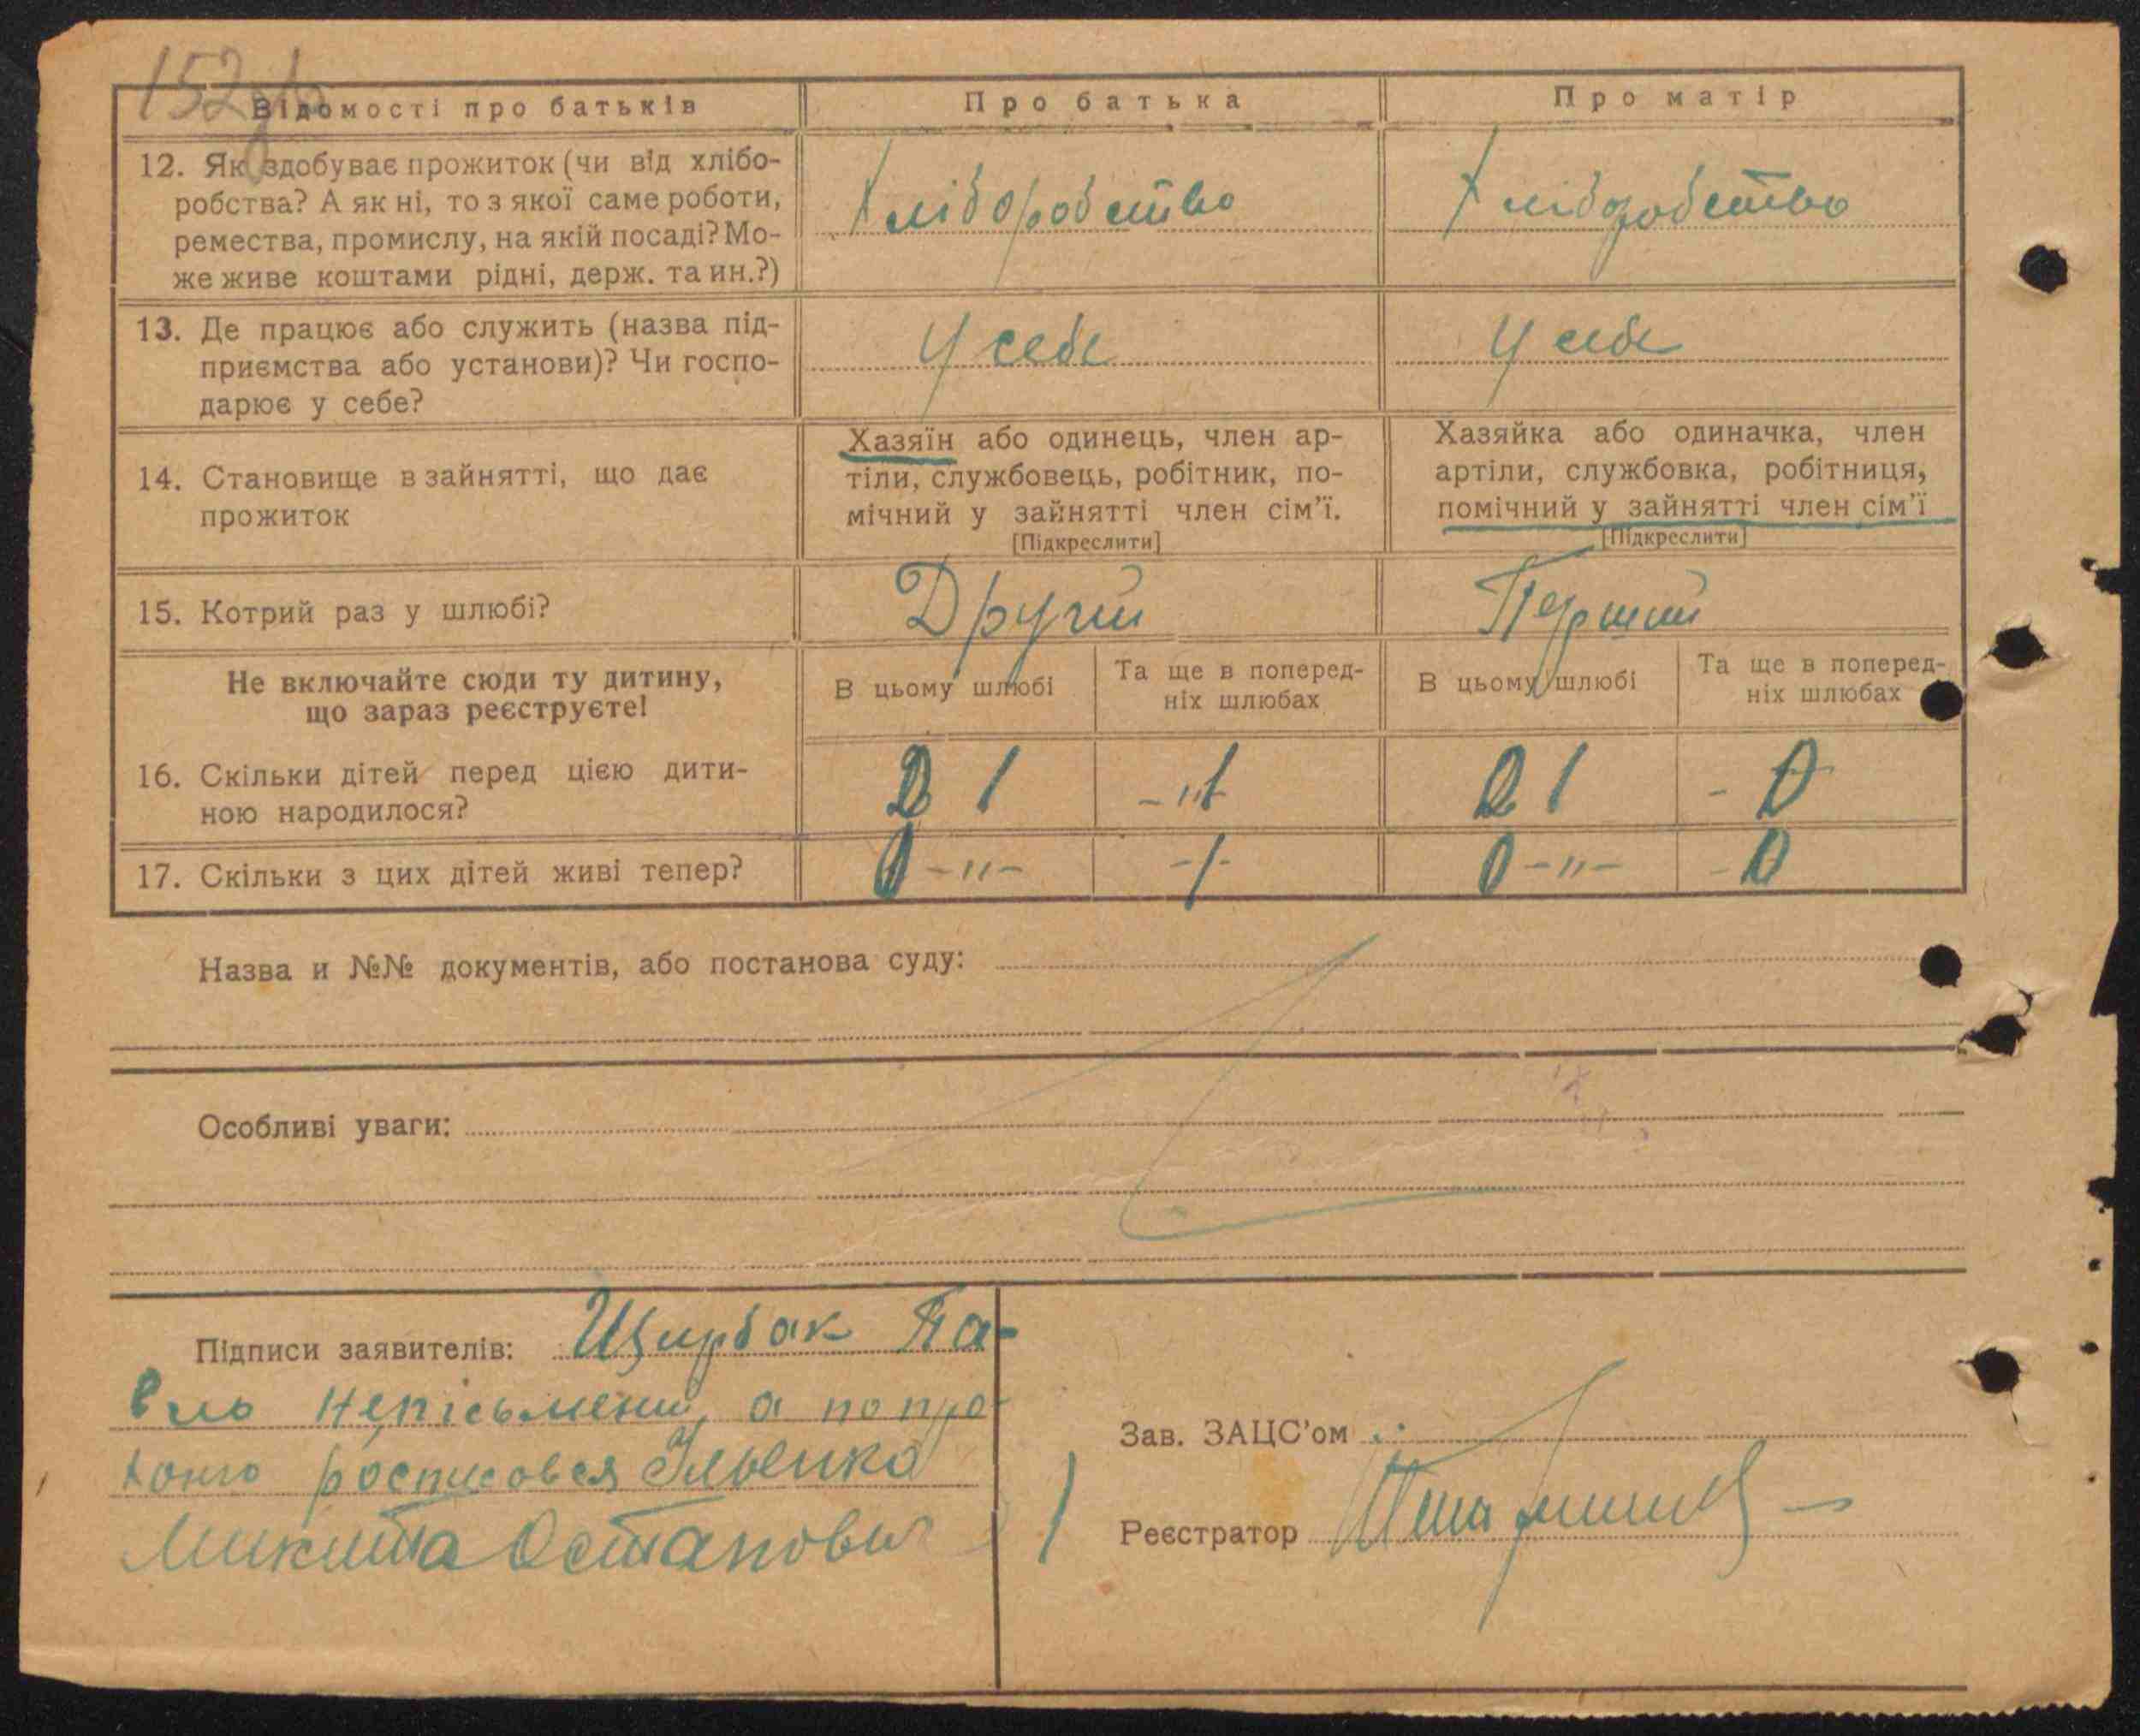 152
Відомості про батьків
Про батька
Про матір
12. Як здобуває прожиток (чи від хлібо-
робства? А як ні, то з якої саме роботи,
ремества, промислу, на якій посаді? Мо-
же живе коштами рідні, держ. та ин.?)
Хліборобство
Хліборобство
13. Де працює або служить (назва під-
приємства або установи)? Чи госпо-
дарює у себе?
У себе
У себе
14. Становище в зайнятті, що дає
прожиток
Хазяїн або одинець, член ар-
тіли, службовець, робітник, по-
мічний у зайнятті член сім'ї.
[Підкреслити]
Хазяйка або одиначка, член
артіли, службовка, робітниця,
помічний у зайнятті член сім'ї
[Підкреслити]
15. Котрий раз у шлюбі?
Другий
Перший
Не включайте сюди ту дитину,
що зараз реєструєте!
В цьому шлюбі
Та ще в поперед-
ніх шлюбах
В цьому шлюбі
Та ще в поперед-
ніх шлюбах
16. Скільки дітей перед цією дити-
ною народилося?
1
1
1
- 0
17. Скільки з цих дітей живі тепер?
0 - " -
- 1 -
0 - " -
- 0
Назва и №№ документів, або постанова суду:
Особливі уваги:
Підписи заявителів: Щирбак Па-
вло непісьмений, а по про-
ханю росписовся Ільєнко
Микита Остапович
Зав. ЗАЦС'ом
Реєстратор